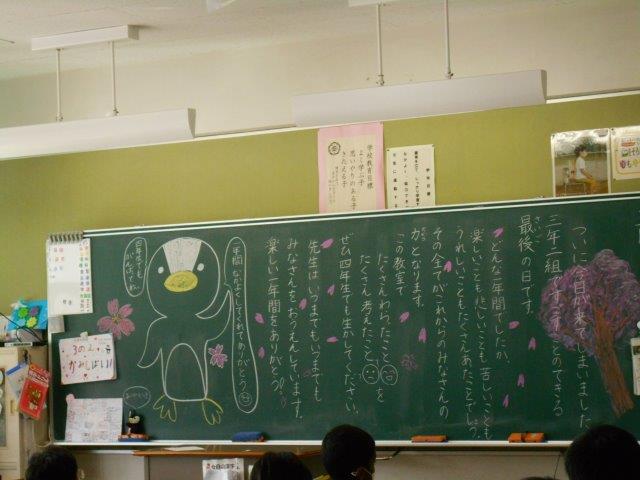 ついに今日が来てしまいました。
三年二組ですごすことのできる
最後の日です。
さいご
どんな一年間でしたか。
楽しいことも悲しいことも、苦しいことも
うれしいこともたくさんあたことでしょう。
その全てがこれからのみなさんの
力となります。
ちから
この教室で
たくさんわらったこと
たくさん考えたこと
を
ぜひ四年生でも生かしてください。
先生はいつまでもいつまでも
みなさんをおうえんしています。
楽しい一年間をありがとう。
一年間なかよくしてくれてありがとう
四年生でも
がんばってね
学校教育目標
よく学ぶ子
思いやりのある子
きたえる子
学年目標
3の2
かみしばい